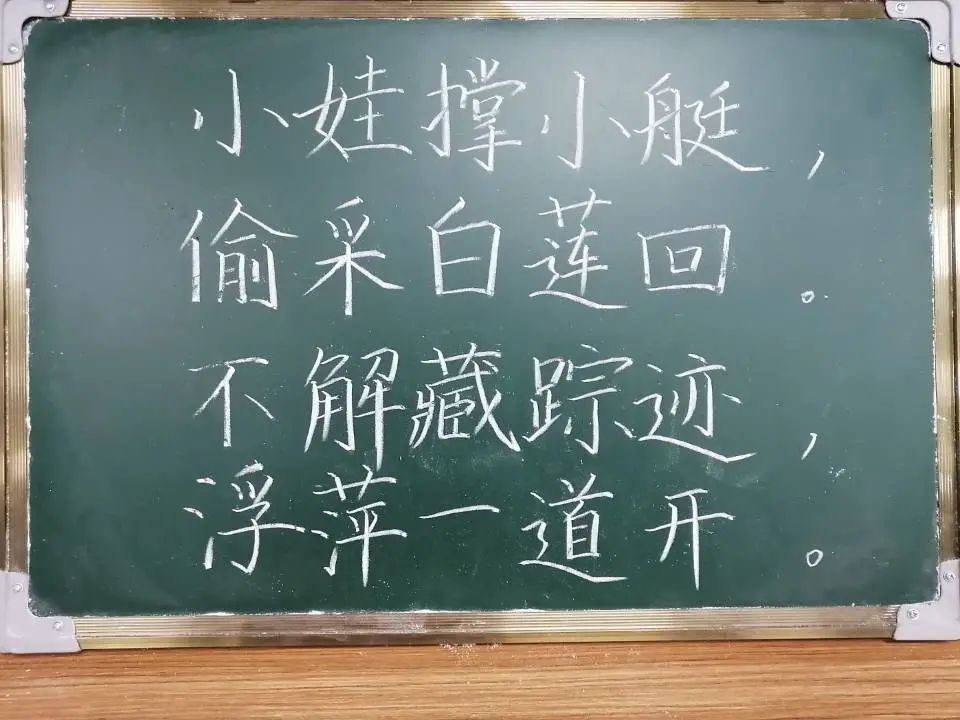 小娃撑小艇，
偷采白莲回。
不解藏踪迹，
浮萍一道开。